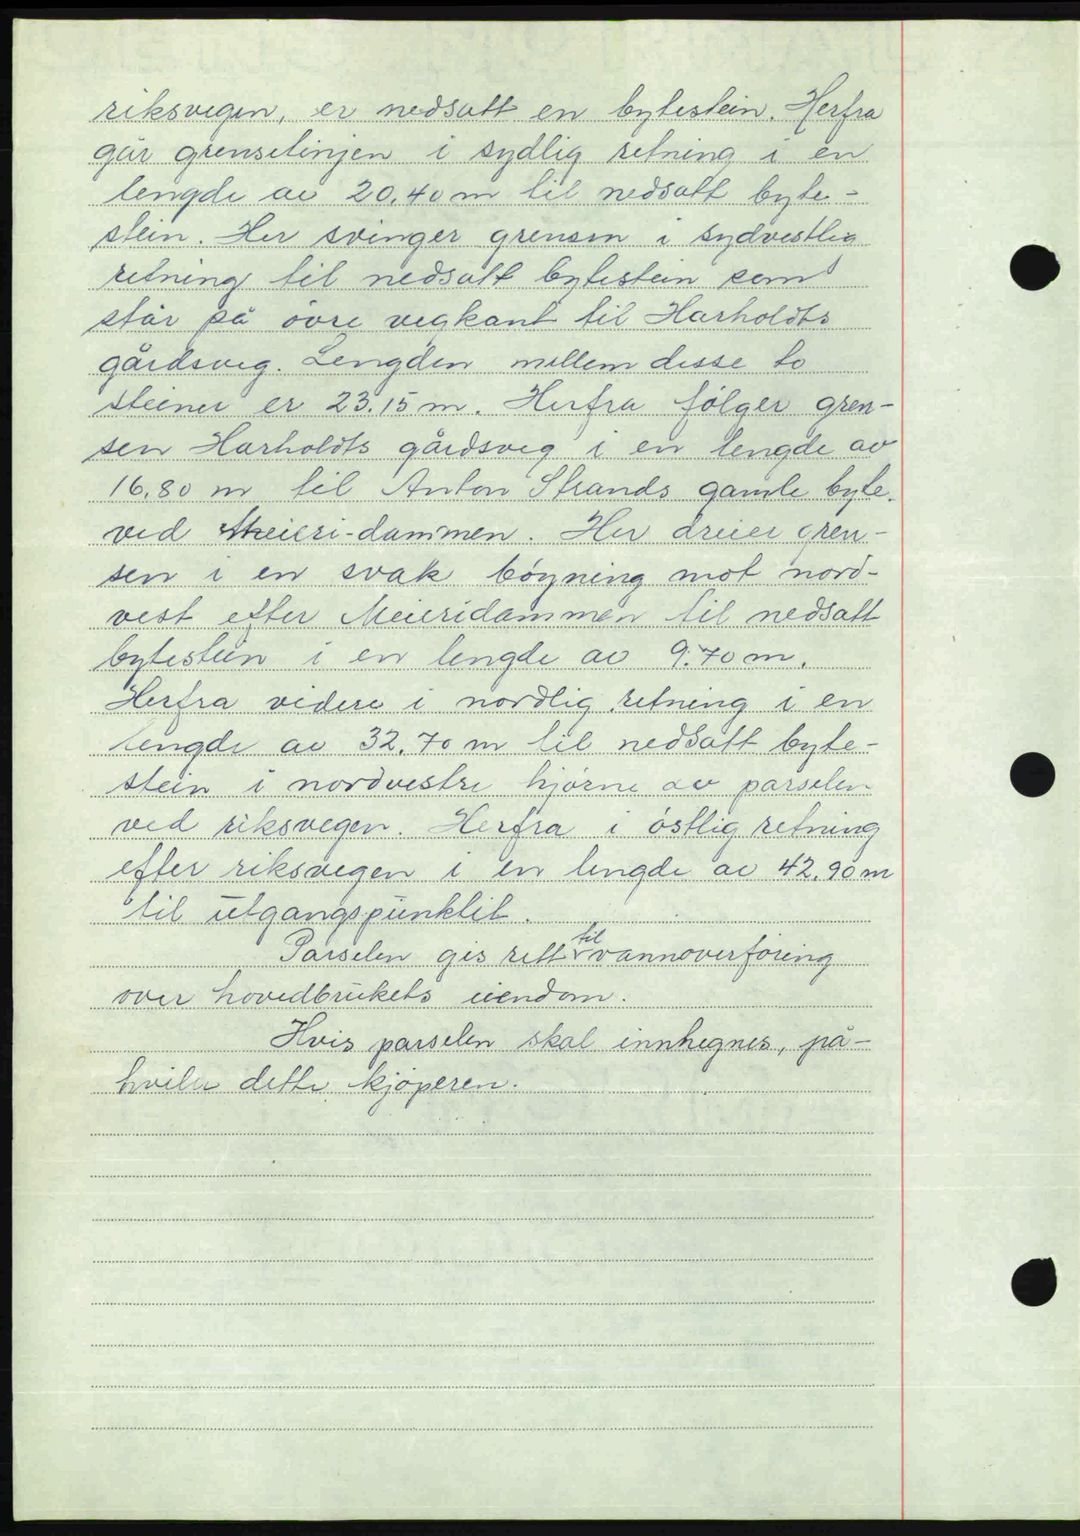 riksvegen, er nedsatt en bytestein. Herfra
går grenselinjen i sydlig retning i en
lengde av 20.40 m til nedsatt byte-
stein. Her svinger grensen i sydvestlig
retning til nedsatt bytestein som
står på övre vegkant til Harholdts
gårdsveg. Lengden mellem disse to
steiner er 23.15 m. Herfra fölger gren-
sen Harholdts gårdsveg i en lengde av
16.80 m til Anton Strands gamle byte.
ved Meieri-dammen. Her dreier gren-
sen i en svak böyning mot nord-
vest efter Meieridammen til nedsatt
bytestein i en lengde av 9.70 m.
Herfra videre i nordlig retning i en
lengde av 32.70 m til nedsatt byte-
stein i nordvestre hjörne av parselen
ved riksvegen. Herfra i östlig retning
efter riksvegen i en lengde av 42.90 m
til utgangspunktet.
Parselen gis rett til vannoverföring
over hovedbrukets eiendom.
Hvis parselen skal innhegnes, på-
hviler dette kjöperen.